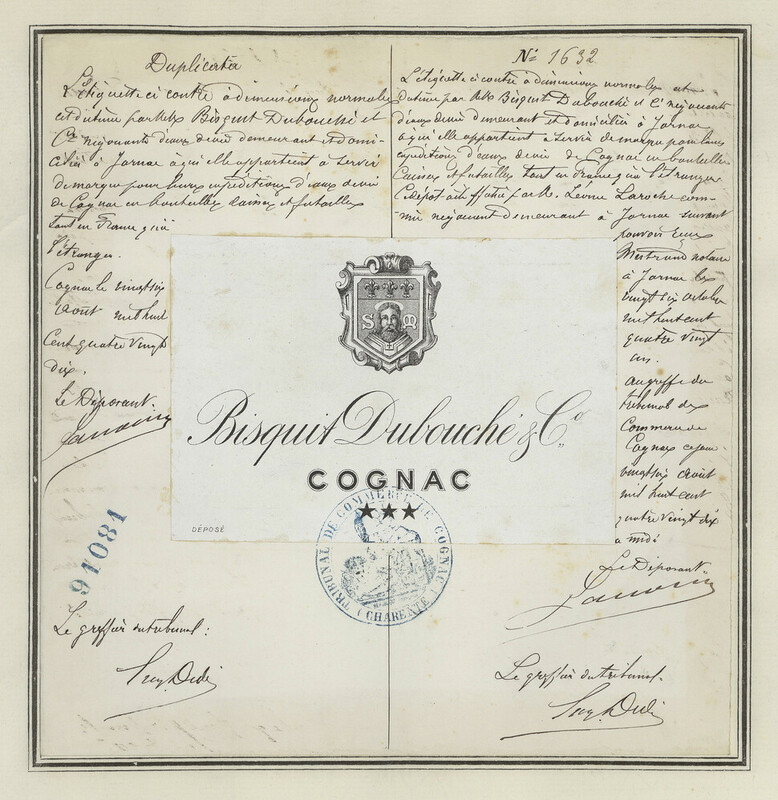 Duplicata
L'étiquette ci contre à dimensions normales
est
Bisquit Dubouché et
Cie négociants d'eaux de vie demeurant et domi-
ciliés à Jarnac à qui elle appartient à servir
de marque pour leurs expéditions d'eaux de vie
de Cognac en bouteilles caisses et futailles
tant en France qu'à
l'étranger.
Cognac le vingt six
août mil huit
cent quatre vingt
dix.
Le Déposant
No 1632
L'étiquette ci contre à dimensions normales est
Bisquit Dubouché et Cie négociants
d'eaux de vie demeurant et domiciliés à Jarnac
à qui elle appartient à servir de marque pour leurs
expéditions d'eaux de vie de Cognac en bouteilles
caisses et futailles tant en France qu'à l'étranger
Ce dépôt a été effectué par M. Léonce Laroche com-
mis négociant demeurant à Jarnac suivant
pouvoir reçu
notaire
à Jarnac le
vingt six octobre
mil huit cent
quatre vingt
un.
au greffe du
tribunal de
Commerce de
Cognac ce jour
vingt six août
mil huit cent
quatre vingt dix
à midi
Le Déposant
S M
Bisquit Dubouché & Co
COGNAC
★★★
DÉPOSÉ
TRIBUNAL DE COMMERCE DE COGNAC
(CHARENTE)
91081
Le greffier du tribunal:
Le greffier du tribunal.